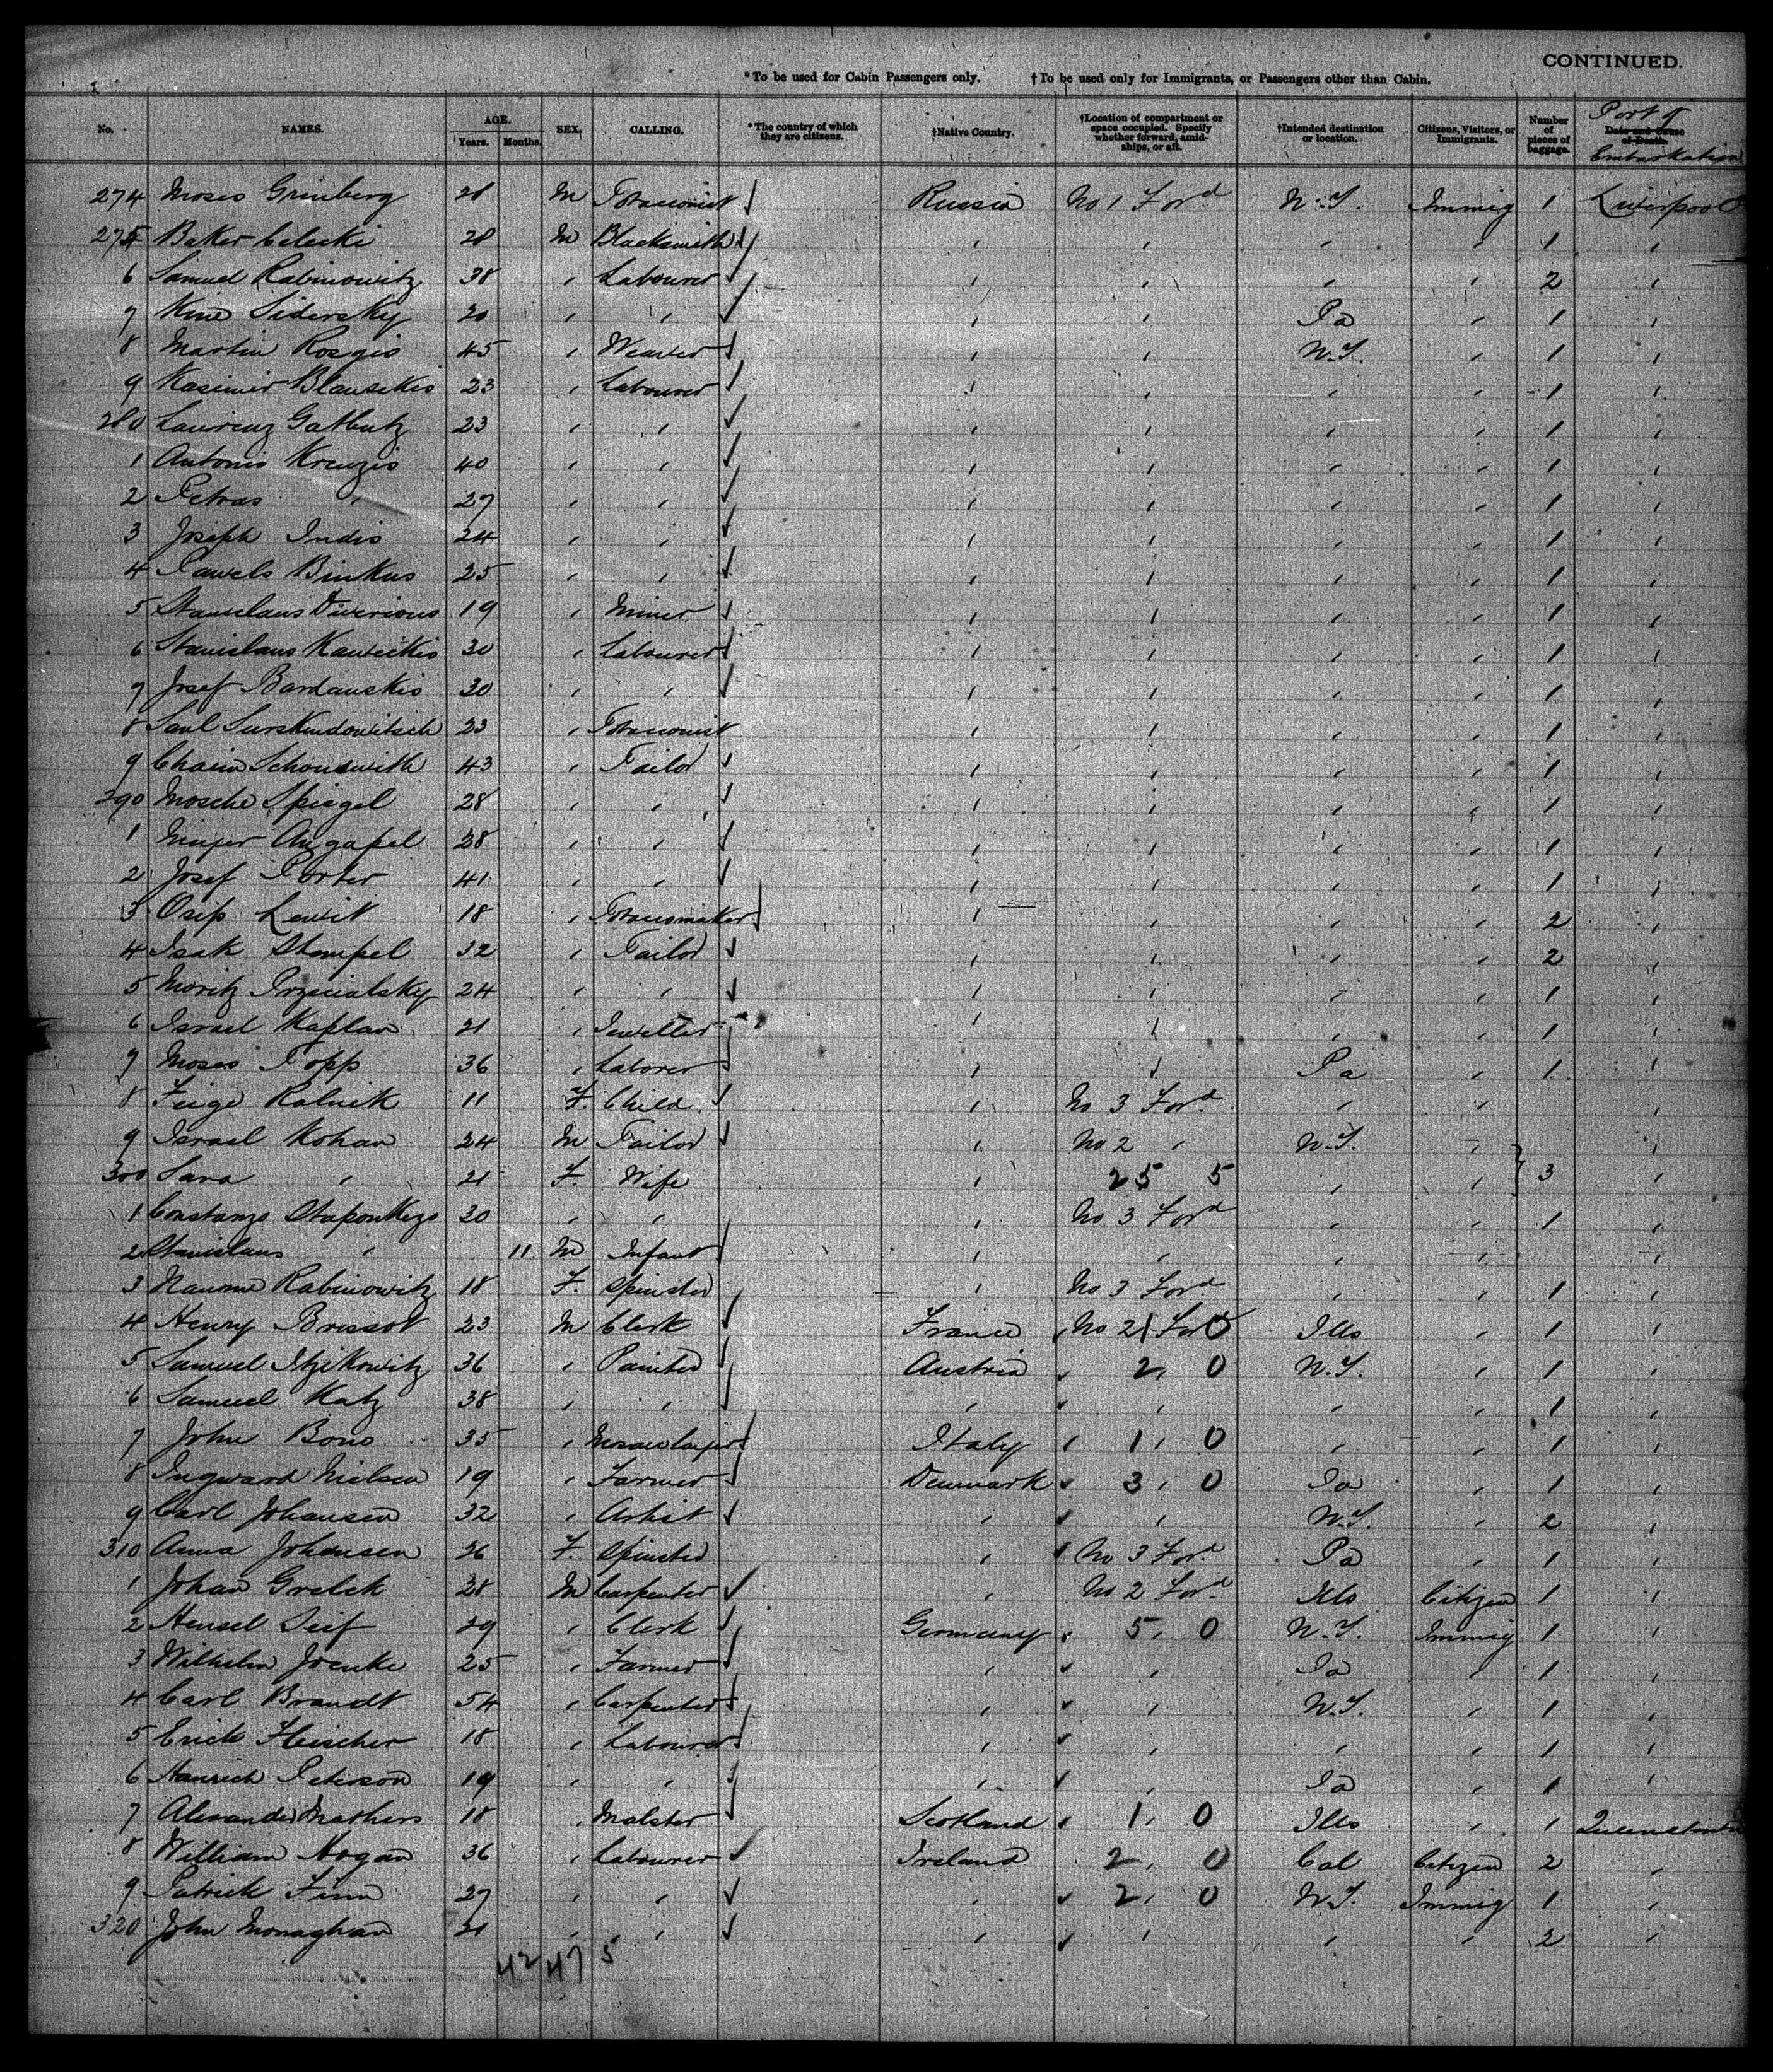 CONTINUED.
*To be used for Cabin Passengers only. †To be used only for Immigrants, or Passengers other than Cabin.
No. NAMES. AGE. Years. Months. SEX. CALLING. *The country of which they are citizens. †Native Country. †Location of compartment or space occupied. Specify whether forward, amidships, or aft. †Intended destination or location. Citizens, Visitors, or Immigrants. Number of pieces of baggage. Date and Cause of Death. Port of Embarkation
274 Moses Grinberg 28 M Tobacconist Russia No 1 Ford N.Y. Immig 1 Liverpool
275 Baker 28 M Blacksmith " " " " 1 "
6 Samuel Rabinowitz 38 " Labourer " " " " 2 "
7 Sidersky 20 " " " " Pa " 1 "
8 Martin Rosgis 45 " Weaver " " N.Y. " 1 "
9 Kasimir Blausekis 23 " Labourer " " " " 1 "
280 Laurenz Gatbutz 23 " " " " " " 1 "
1 Antonis Krenzis 40 " " " " " " 1 "
2 Petras " 27 " " " " " " 1 "
3 Joseph Indis 24 " " " " " " 1 "
4 Pawels Binkus 25 " " " " " " 1 "
5 Stanislaus 19 " Miner " " " " 1 "
6 Stanislaus Kaweckis 30 " Labourer " " " " 1 "
7 Josef Bardauskis 30 " " " " " " 1 "
8 Saul Surskendowitsch 23 " Tobacconist " " " " 1 "
9 Chaim Schonswith 43 " Tailor " " " " 1 "
290 Mosche Spiegel 28 " " " " " " 1 "
1 Augapel 28 " " " " " " 1 "
2 Josef Porter 41 " " " " " " 1 "
3 Osip Lewit 18 " Tobaccomaker " " " " 2 "
4 Isak Stempel 32 " Tailor " " " " 2 "
5 Moritz Przecialsky 24 " " " " " " 1 "
6 Israel Kaplan 21 " Jeweller " " " " 1 "
7 Moses Popp 36 " Laborer " " Pa " 1 "
8 Feige Rolnik 11 F. Child " No 3 Ford " " "
9 Israel Kohan 24 M Tailor " No 2 " N.Y. " "
300 Sara " 21 F. Wife " 25 5 " " 3 "
1 Constanzo Staponkezo 20 " " " No 3 Ford " " 1 "
2 Stanislaus " 11 M Infant " " " " "
3 Rabinowitz 18 F. Spinster " No 3 Ford " " 1 "
4 Henry Brissot 23 M Clerk France No 2 1 Ford 0 Ills " 1 "
5 Samuel Itzikowitz 36 " Painter Austria 2 " 0 N.Y. " 1 "
6 Samuel Katz 38 " " " " " " 1 "
7 John Bono 35 " Mosaic layer Italy 1 " 0 " " 1 "
8 Ingward Nielsen 19 " Farmer Denmark 3 " 0 Ia " 1 "
9 Carl Johansen 32 " Artist " " N.Y. " 2 "
310 Anna Johansen 26 F. Spinster " No 3 Ford Pa " 1 "
1 Johan Grelck 28 M Carpenter " No 2 Ford Ills Citizen 1 "
2 Hensel Seif 29 " Clerk Germany 5 " 0 N.Y. Immig 1 "
3 Wilhelm Joenke 25 " Farmer " " Ia " 1 "
4 Carl Brandt 54 " Carpenter " " N.Y. " 1 "
5 Erick Fleischer 18 " Labourer " " " " 1 "
6 Heinrich Peterson 19 " " " " Ia " 1 "
7 Alexander Mathers 18 " Malster Scotland 1 " 0 Ills " 1 Queenstown
8 William Hogan 36 " Labourer Ireland 2 " 0 Cal Citizen 2 "
9 Patrick Finn 27 " " " 2 " 0 N.Y. Immig 1 "
320 John Monaghan 21 " " " " " " 2 "
42 47 5